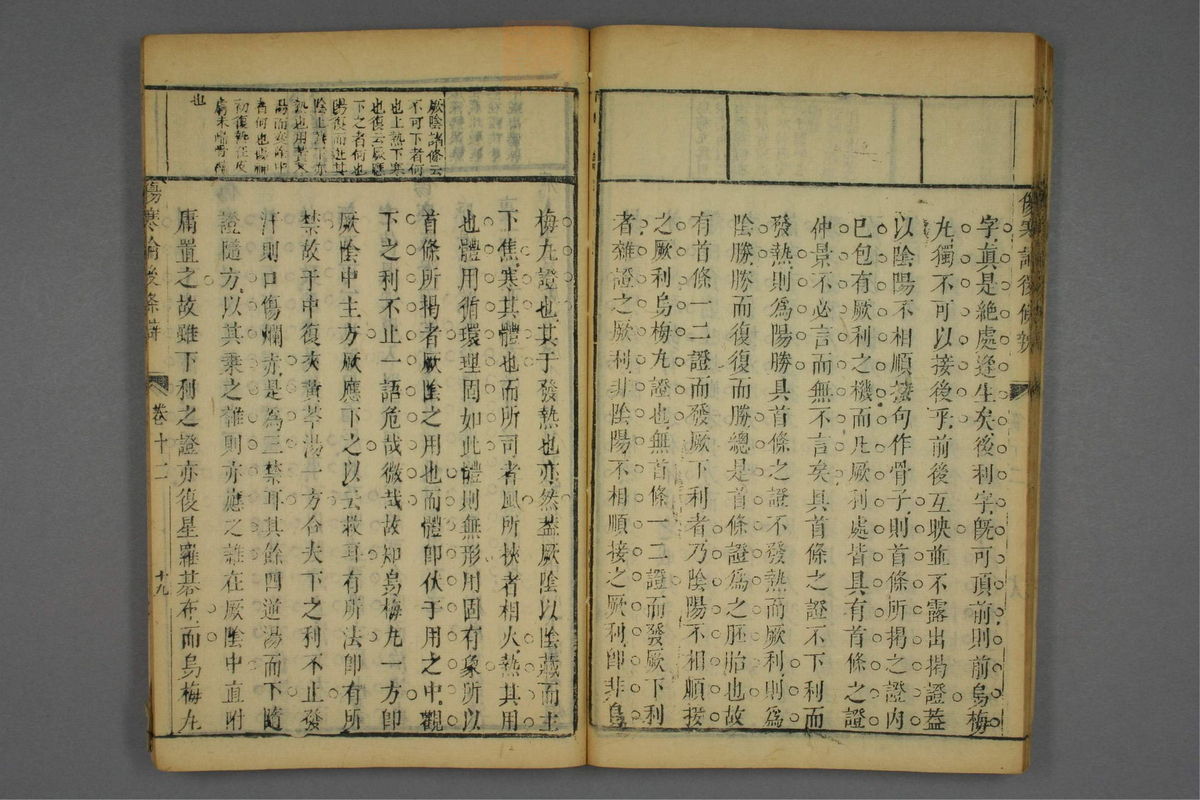 字真是絶處逢生矣後利字既可頂前則前烏梅
九獨不可以接後乎前後互映並不露出揭證葢
以陰陽不相順接句作骨子則首條所揭之證內
已包有厥利之機而凡厥利處皆具有首條之證
仲景不必言而無不言矣具首條之證不下利而
發熱則為陽勝具首條之證不發熱而厥利則為
陰勝勝而復復而勝總是首條證為之胚胎也故
有首條一二證而發厥下利者乃陰陽不相順接
之厥利烏梅九證也無首條一二證而發厥下利
者雜證之厥利非陰陽不相順接之厥利即非烏
傷寒論後條辨
梅九證也其于發熱也亦然葢厥陰以陰藏而主
下焦寒其體也而所司者風所挾者相火熱其用
也體用循環理固如此體則無形用固有象所以
首條所揭者厥陰之用也而體即伏于用之中觀
下之利不止一語危哉微哉故知烏梅九一方即
厥陰中主方厥應下之以去救耳有所法即有所
禁故于中復夾黃芩湯一方合夫下之利不止發
汗則口傷爛赤是為三禁耳其餘四逆湯而下隨
證隨方以其乘之雜則亦應之雜在厥陰中直附
庸置之故雖下利之證亦復星羅棊布而烏梅九
厥陰諸條云
不可下者何
也上熱下寒
也復云厥應
下之者何也
陽復而
陰上
湯而
者何也
初復熱在
也
傷寒論後條辨
卷十二
十九